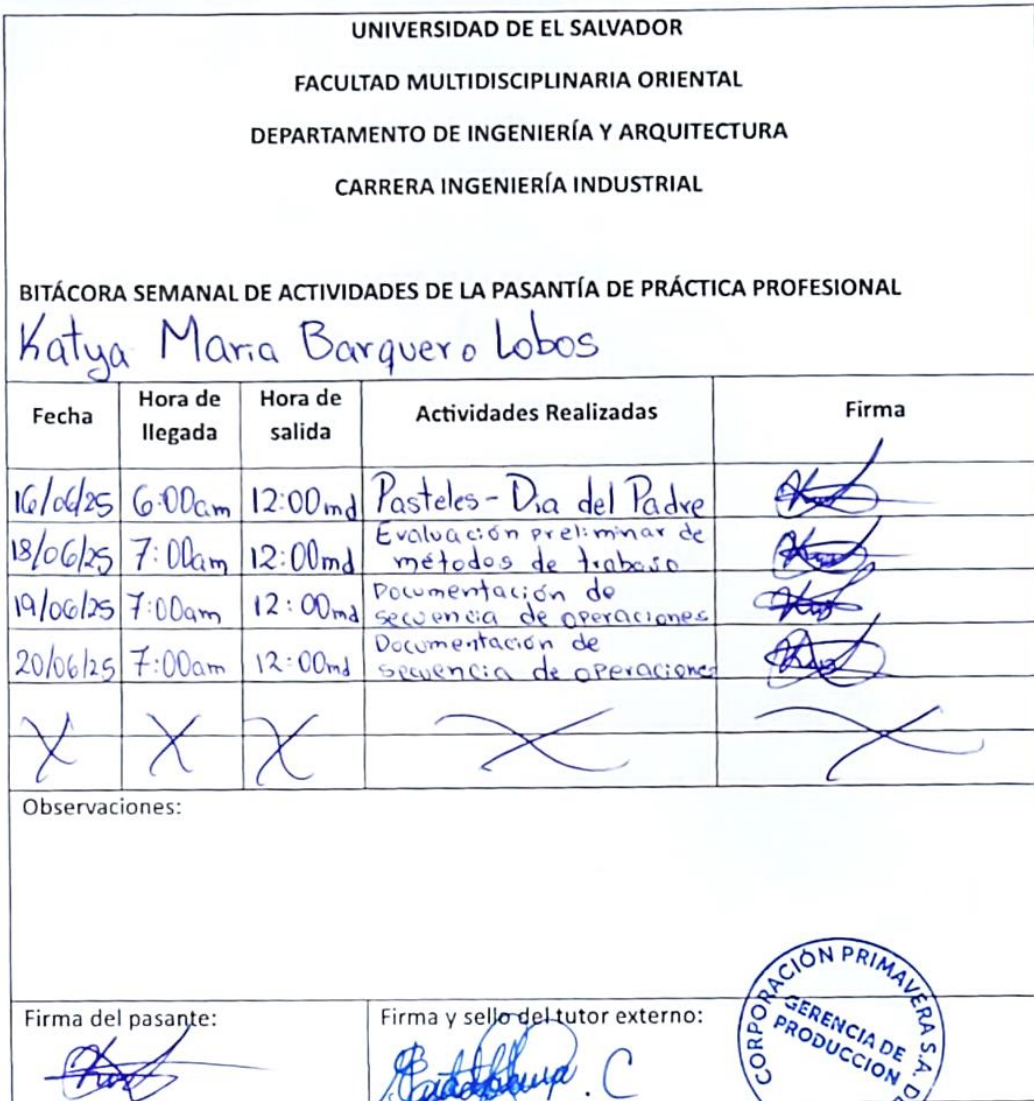 UNIVERSIDAD DE EL SALVADOR
FACULTAD MULTIDISCIPLINARIA ORIENTAL
DEPARTAMENTO DE INGENIERÍA Y ARQUITECTURA
CARRERA INGENIERÍA INDUSTRIAL
BITÁCORA SEMANAL DE ACTIVIDADES DE LA PASANTÍA DE PRÁCTICA PROFESIONAL
Katya Maria Barquero Lobos
Fecha Hora de llegada Hora de salida Actividades Realizadas Firma
16/06/25 6:00am 12:00md Pasteles - Dia del Padre
18/06/25 7:00am 12:00md Evaluación preliminar de métodos de trabajo
19/06/25 7:00am 12:00md Documentación de secuencia de operaciones
20/06/25 7:00am 12:00md Documentación de secuencia de operaciones
Observaciones:
Firma del pasante: Firma y sello del tutor externo:
CORPORACIÓN PRIMAVERA S.A. D
GERENCIA DE
PRODUCCION